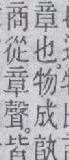 章也。物成
商從章聲。